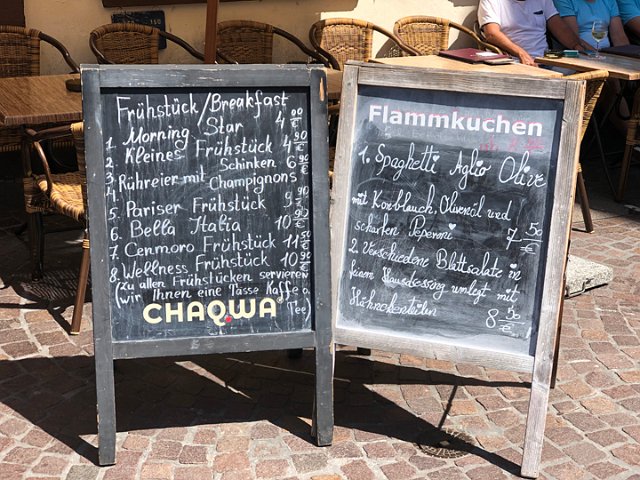 Frühstück/Breakfast
1. Morning Star 4,00 €
2. Kleines Frühstück 4,90 €
3. Schinken 6,90 €
4. Rühreier mit Champignons
5. Pariser Frühstück 9,90 €
6. Bella Italia 10,90 €
7. Cenmoro Frühstück 11,50 €
8. Wellness Frühstück 10,90 €
(Zu allen Frühstücken servieren
wir Ihnen eine Tasse Kaffee o.
Tee)
CHAQWA
Flammkuchen
1. Spaghetti Aglio Olive
mit Knoblauch, Olivenöl und
scharfen Peperoni 7,50
2. Verschiedene Blattsalate in
feiem Hausdressing umlegt mit
8,50